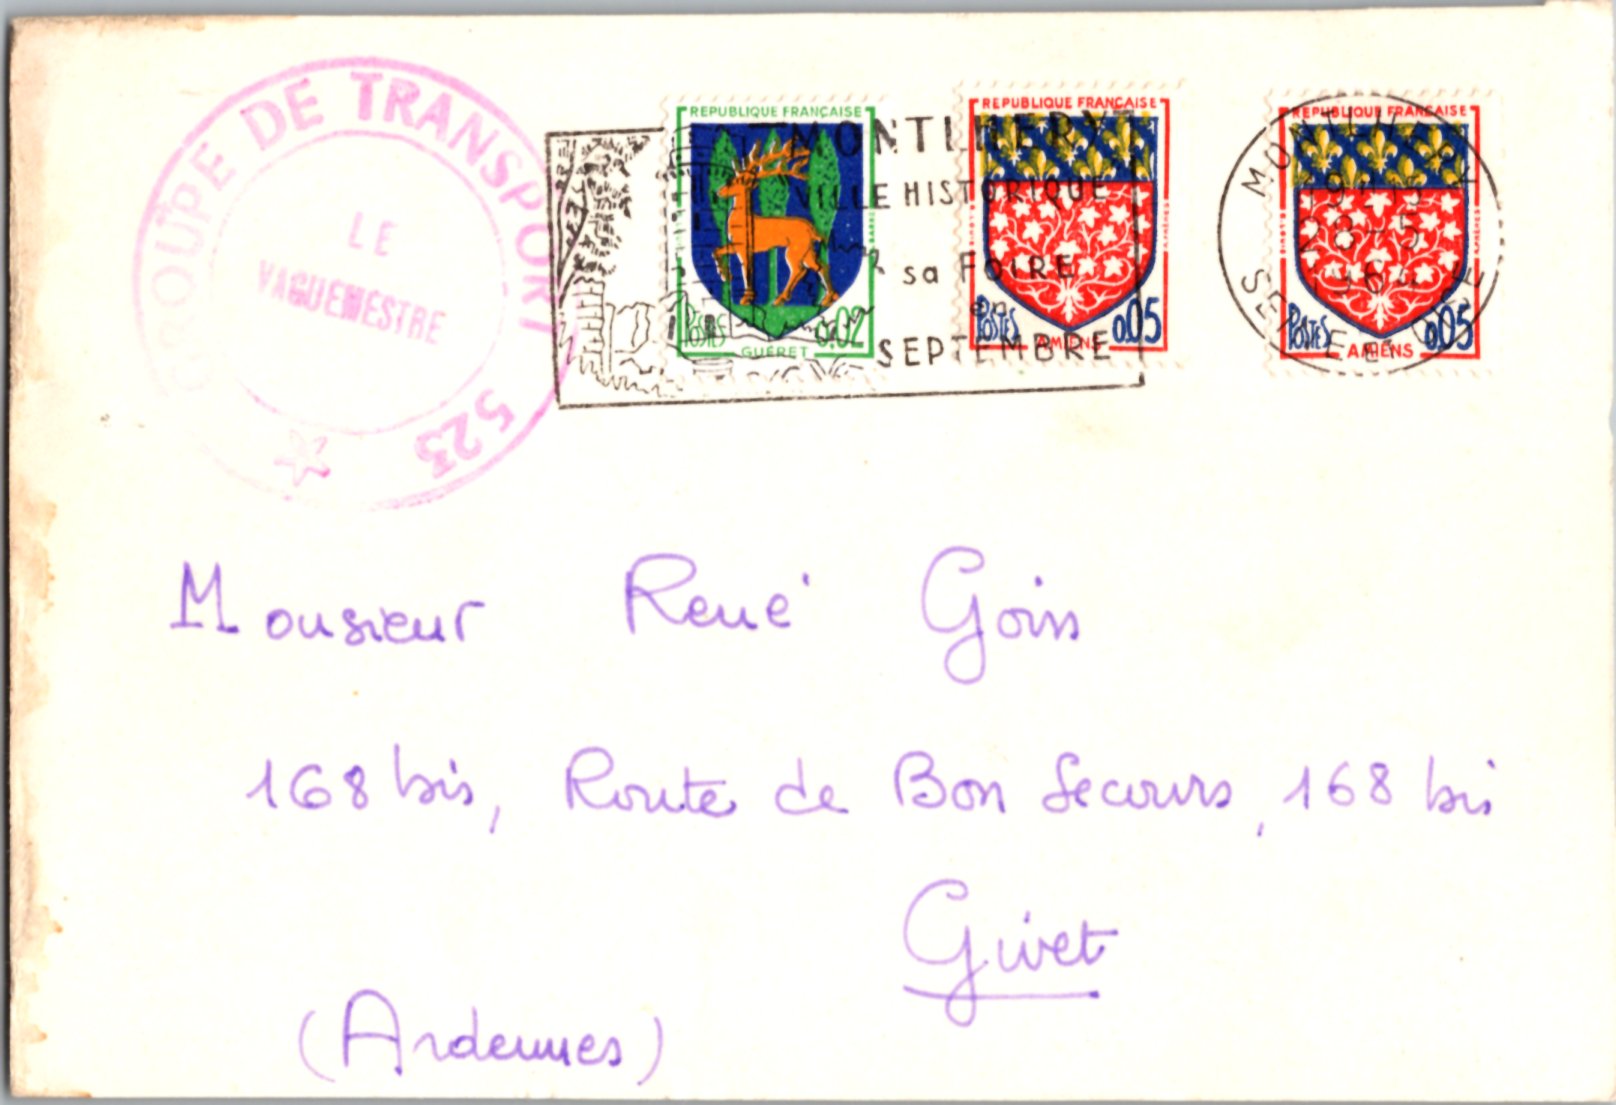 GROUPE DE TRANSPORT 523
LE
VAGUEMESTRE
REPUBLIQUE FRANÇAISE
POSTES
0.02
GUÉRET
MONTLHERY
VILLE HISTORIQUE
sa FOIRE
en
SEPTEMBRE
REPUBLIQUE FRANÇAISE
POSTES
0.05
AMIENS
REPUBLIQUE FRANÇAISE
POSTES
0.05
AMIENS
MONTLHERY
28-5
1964
Monsieur René Goin
168 bis, Route de Bon Secours, 168 bis
Givet
(Ardennes)